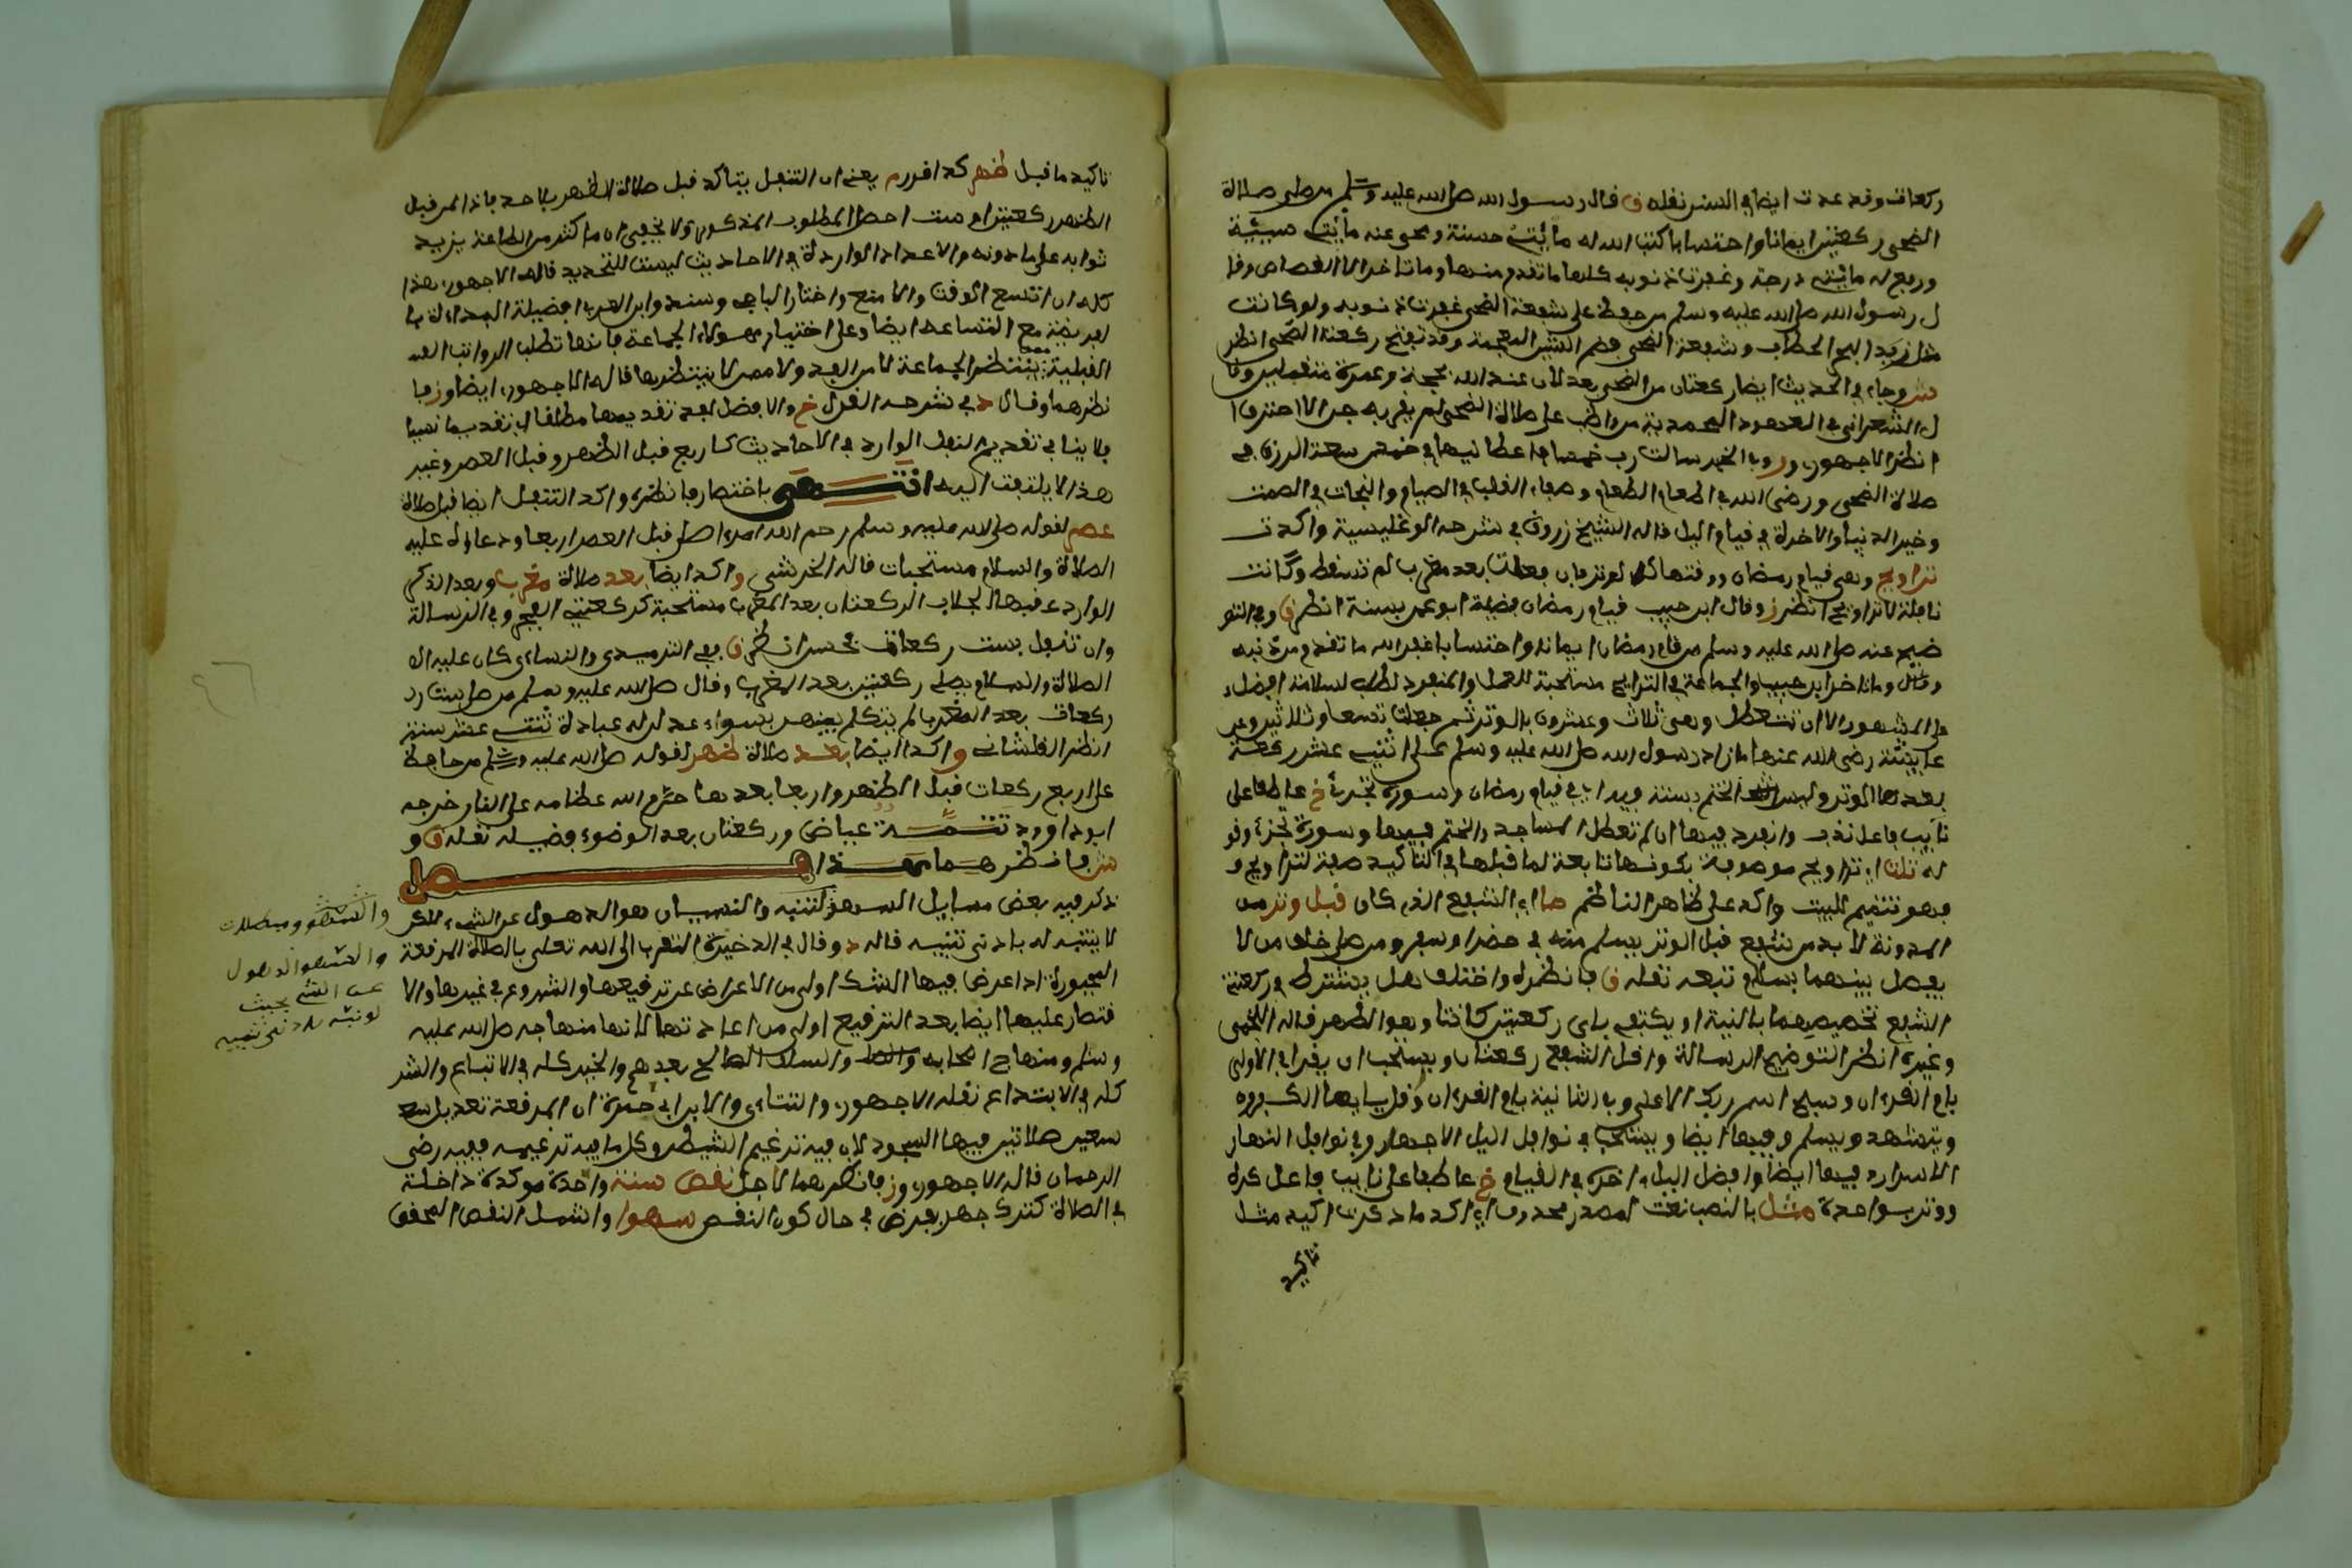 ركعات وقد عدت ايضا في السنن نقله ق قال رسول الله صلى الله عليه وسلم من صلى صلاة
الضحى ركعتين ايمانا واحتسابا كتب الله له مائتي حسنة ومحى عنه مائتي سيئة
ورفع له مائتي درجة وغفرت له ذنوبه كلها ما تقدم منها وما تاخر الا القصاص وقا
ل رسول الله صلى الله عليه وسلم من حافظ على شفعة الضحى غفرت له ذنوبه ولو كانت
مثل زبد البحر الحطاب وشفعة الضحى بضم الشين المعجمة وقد تفتح ركعتا الضحى انظر
شر وجاء في الحديث ايضا ركعتان من الضحى يعدلان عند الله بحجة وعمرة متقبلتين وقا
ل الشعراني في العهود المحمدية من واظب على صلاة الضحى لم يقربه جن الا احترق
انظر الاجهوري وروي الخبر سالت رب خمسا فاعطانيها في خمس سعة الرزق في
صلاة الضحى ورضى الله في اطعام الطعام وصفاء القلب في الصيام والنجاة في الصمت
وخير الدنيا والاخرة في قيام اليل قاله الشيخ زروق في شرحه الوغليسية واكدت
تراويح وهي قيام رمضان ووقتها كالوتر فان فعلت بعد مغرب لم تسقط وكانت
نافلة لا تراويح انظر ز وقال ابن حبيب قيام رمضان فضيلة ابو عمر سنة انظر ق وفي التو
ضيح عنه صلى الله عليه وسلم من قام رمضان ايمانا واحتسابا غفر الله ما تقدم من ذنبه
وما تاخر ابن حبيب والجماعة في التراويح مستحبة للعمل والمنفرد لطلب لسلامة افضل
على المشهور الا ان تتعطل وهي ثلاث وعشرون بالوتر ثم جعلت تسعا وثلاثين وعن
عايشة رضي الله عنها ما زاد رسول الله صلى الله عليه وسلم على اثنتي عشر ركعة
بعدها الوتر وليس الختم بسنة فيه اي في قيام رمضان وسورة تجزئ خ عاطفا على
نايب فاعل ندب وانفرد فيها ان لم تعطل المساجد والختم فيها وسورة تجزئ وقو
له تلت اي تراويح موصوفة بكونها تابعة لما قبلها في التاكيد صفة لتراويح و
فهو تتميم للبيت واكد على ظاهر الناظم صا اي الشفع الذي كان قبل وتر من
المدونة لا بد من شفع قبل الوتر يسلم منه في حضر او سفر ومن صلى خلف من لا
يفصل بينهما بسلام تبعه نقله ق فانظره واختلف هل يشترط في ركعتي
الشفع تخصيصهما بالنية او يكتفي باي ركعتين كانتا وهو الظهر قاله اللخمي
وغيره انظر التوضيح الرسالة واقل الشفع ركعتان ويستحب ان يقرا في الاولى
بام القرءان وسبح اسم ربك الاعلى وفي الثانية بام القرءان وقل يايها الكفرون
ويتشهد ويسلم وفيها ايضا ويستحب في نوافل اليل الاجهار وفي نوافل النهار
الاسرار وفيها ايضا وافضل اليل اخره في القيام خ عاطفا على نايب فاعل كره
ووتر بواحدة مثل بالنصب نعت لمصدر محذوف اي اكد ما ذكرت اكيد مثل
تاكيد
تاكيد ما قبل ظهر كذا قرر م يعني ان التنفل يتاكد قبل صلاة الظهر بلا حد فاذا لمن قبل
الظهر ركعتين او ست احصل المطلوب المذكور ولا يخفى ان ما كثر من الطاعة يزيد
ثوابه على ما دونه والاعداد الواردة في الاحاديث ليست للتحديد قاله الاجهوري هذا
كله ان اتسع الوقت والا منع واختار الباجي وسند وابن العربي افضيلة البداءة با
لفريضة مع اتساعه ايضا وعلى اختيار هؤلاء الجماعة فانها تطلب الرواتب
القبلية ينتظر الجماعة لا من الفذ ولا ممن لا ينتظرها قاله الاجهوري ايضا وز فا
نظرهما وقال د في شرحه القول خ والافضل لفذ تقديمها مطلقا اي تقديما نسبيا
فلا ينافي تقديم النفل الوارد في الاحاديث كاربع قبل الظهر وقبل العصر وغير
هذا لا يلتفت اليه انتهى باختصار فانظره واكد التنفل ايضا قبل صلاة
عصر لقوله صلى الله عليه وسلم رحم الله امرءا صلى قبل العصر اربعا ودعاؤه عليه
الصلاة والسلام مستجاب قاله الخرشي واكد ايضا بعد صلاة مغرب وبعد الذكر
الوارد عقبها الجلاب الركعتان بعد المغرب مستحبة كركعتي الفجر وفي الرسالة
وان تنفل بست ركعات فحسن انظر ق وفي الترميدي والنساي كان عليه ا
الصلاة والسلام يصلي ركعتين بعد المغرب وقال صلى الله عليه وسلم من صلى ست ر
ركعات بعد المغرب لم يتكلم بينهن بسوء عدلن له عبادة ثنتي عشر سنة
انظر القلشاني واكد ايضا بعد صلاة ظهر لقوله صلى الله عليه وسلم من حافظ
على اربع ركعات قبل الظهر واربعا بعدها حرم الله عظامه على النار خرجه
ابو داوود تتمة عياض وركعتان بعد الوضوء فضيلة نقله ق و
شر فانظرهما هذا فصل
نذكر فيه بعض مسايل السهو لتنبيه والنسيان هو الذهول عن الشيء لاكن
لا يتنبه له بادنى تنبيه قاله د وقال في الدخيرة التقرب الى الله تعلى بالصلاة المرقعة
المجبورة اذا عرض فيها الشك اولى من الاعراض عن ترقيعها والشروع في غيرها والا
قتصار عليها ايضا بعد الترقيع اولى من اعادتها لانها منهاجه صلى الله عليه
وسلم ومنهاج اصحابه والسلف الصالح بعدهم والخير كله في الاتباع والشر
كله في الابتداع نقله الاجهوري والتتاءي ولابن ابي جمرة ان المرقعة تعدل سبع
سبعين صلاة ليس فيها السجود لان فيه ترغيم الشيطن وكل ما فيه ترغيمه ففيه رضى
الرحمان قاله الاجهوري وز فانظرهما لاجل نقص سنة واحدة موكدة داخلة
في الصلاة كترك جهر بفرض في حال كون النقص سهوا واشمل النقص المحقق
عن الشيء بحيث
لو نبه بادنى تنبيه